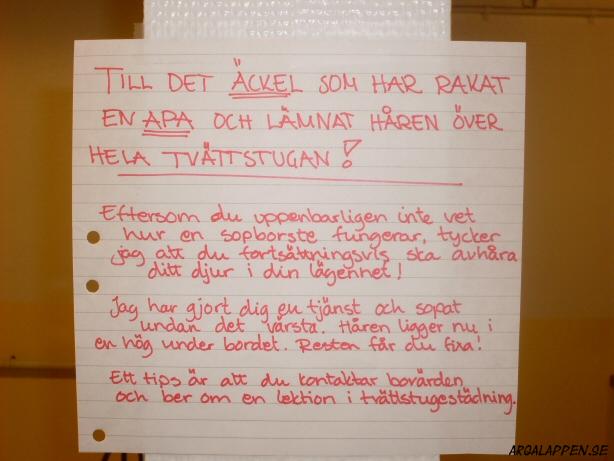 TILL DET ÄCKEL SOM HAR RAKAT
EN APA OCH LÄMNAT HÅREN ÖVER
HELA TVÄTTSTUGAN!
Eftersom du uppenbarligen inte vet
hur en sopborste fungerar, tycker
jag att du fortsättningsvis ska avhåra
ditt djur i din lägenhet!
Jag har gjort dig en tjänst och sopat
undan det värsta. Håren ligger nu i
en hög under bordet. Resten får du fixa!
Ett tips är att du kontaktar bovärden
och ber om en lektion i tvättstugestädning.
ARGALAPPEN.SE